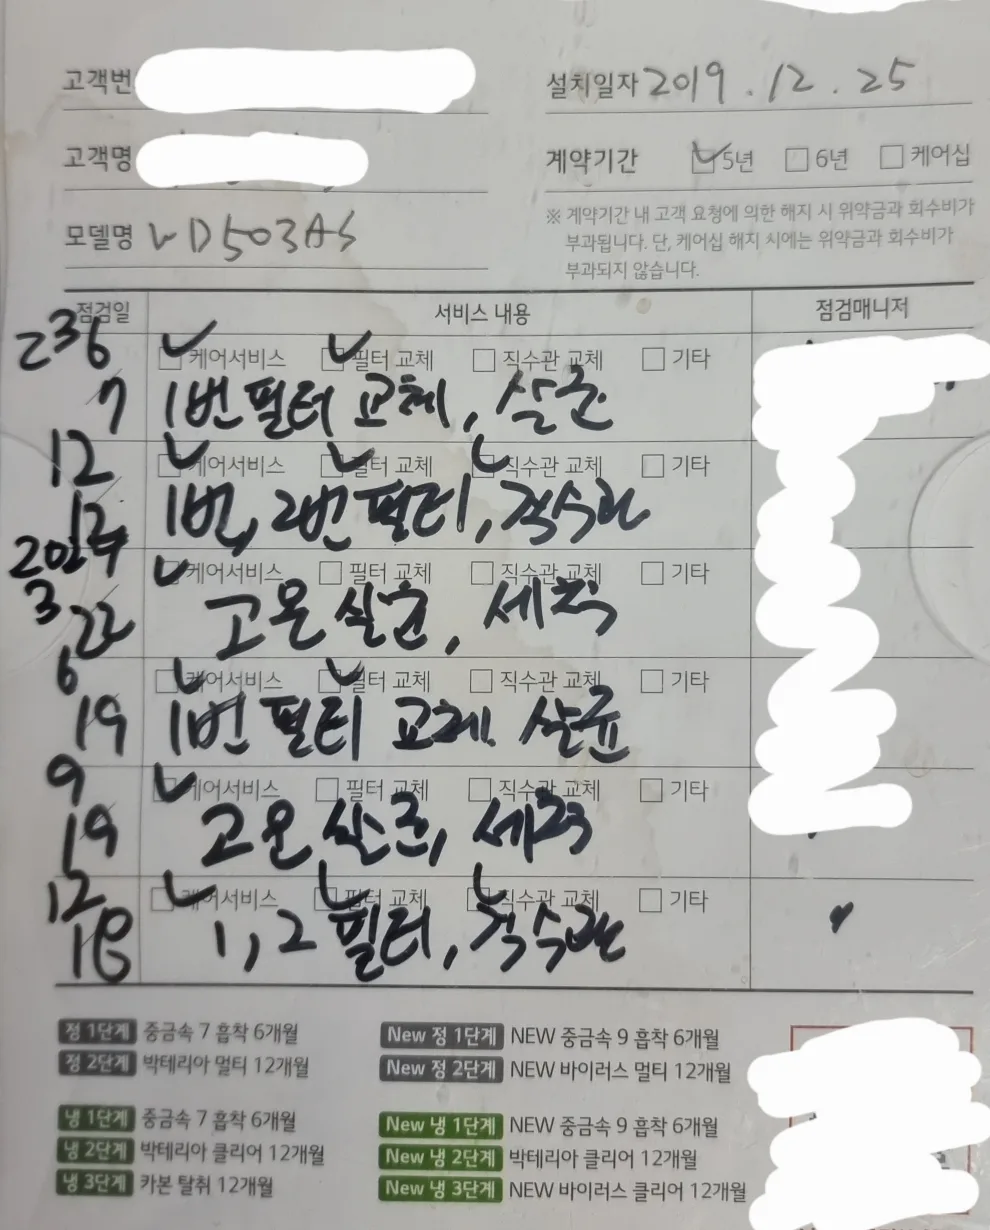 고객번
설치일자 2019.12.25
고객명
계약기간 5년 6년 케어십
모델명 WD503AS
※ 계약기간 내 고객 요청에 의한 해지 시 위약금과 회수비가
부과됩니다. 단, 케어십 해지 시에는 위약금과 회수비가
부과되지 않습니다.
점검일 서비스 내용 점검매니저
236
케어서비스 필터 교체 직수관 교체 기타
7 1번 필터 교체, 살균
12
케어서비스 필터 교체 직수관 교체 기타
12 1번, 2번 필터, 직수관
2024
케어서비스 필터 교체 직수관 교체 기타
3
22 고온 살균, 세척
6
케어서비스 필터 교체 직수관 교체 기타
19 1번 필터 교체 살균
9
케어서비스 필터 교체 직수관 교체 기타
19 고온 살균, 세척
12
케어서비스 필터 교체 직수관 교체 기타
18 1, 2 필터, 직수관
정 1단계 중금속 7 흡착 6개월
New 정 1단계 NEW 중금속 9 흡착 6개월
정 2단계 박테리아 멀티 12개월
New 정 2단계 NEW 바이러스 멀티 12개월
냉 1단계 중금속 7 흡착 6개월
New 냉 1단계 NEW 중금속 9 흡착 6개월
냉 2단계 박테리아 클리어 12개월
New 냉 2단계 박테리아 클리어 12개월
냉 3단계 카본 탈취 12개월
New 냉 3단계 NEW 바이러스 클리어 12개월